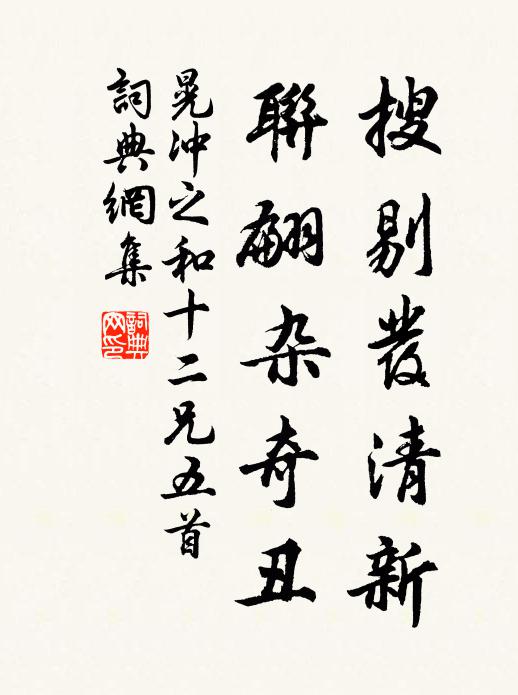 搜剔發清新
聯翩杂奇丑
晃沖之和十二兄五首
詞典網集
詞典网印